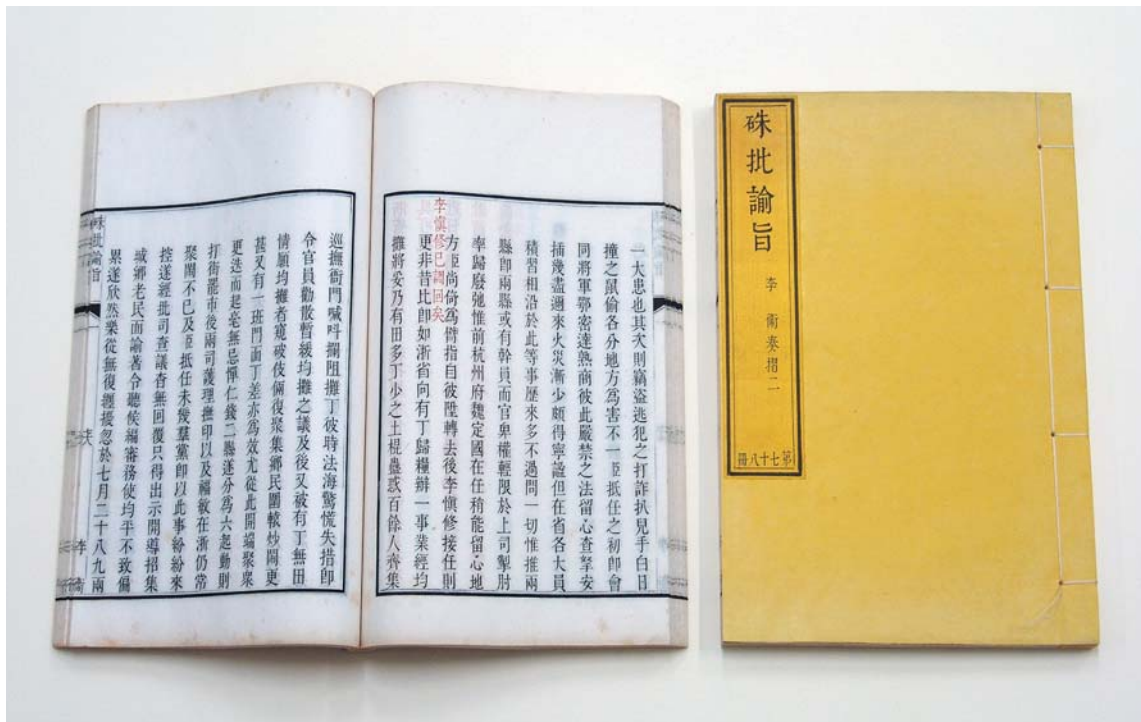 一大患也其次則竊盜逃犯之打詐扒兒手白日
撞之鼠偷各分地方為害不一臣抵任之初即會
同將軍鄂密達熟商彼此嚴禁之法留心查拏安
插幾盡邇來火災漸少頗得寧謐但在省各大員
積習相沿於此等事歷來多不過問一切惟推兩
縣即兩縣或有幹員而官卑權輕限於上司掣肘
率歸廢弛惟前杭州府魏定國在任稍能留心地
方臣尚倚為臂指自彼陞轉去後李慎修接任則
李慎修已調回矣
更非昔比即如浙省向有丁歸糧辦一事業經均
攤將妥乃有田多丁少之土棍蠱惑百餘人齊集
巡撫衙門喊呌攔阻攤丁彼時法海驚慌失措即
令官員勸散暫緩均攤之議及後又被有丁無田
情願均攤者窺破伎倆復聚集鄉民團轅炒鬧更
甚又有一班門面丁差亦為效尤從此開端聚衆
更迭而起毫無忌憚仁錢二縣遂分為六起動則
打街罷市後兩司護理撫印以及福敏在浙仍常
聚鬧不已及臣抵任未幾羣黨即以此事紛紛來
控遂經批司查議杳無回覆只得出示開導招集
城鄉老民面諭著令聽候編審務使均平不致偏
累遂欣然樂從無復纏擾忽於七月二十八九兩
硃批諭旨
李衛
硃批諭旨
李衛奏摺二
第七十八冊